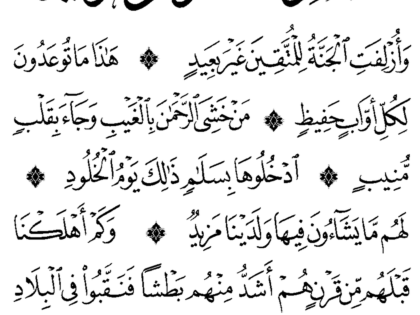 وَأُزْلِفَتِ ٱلْجَنَّةُ لِلْمُتَّقِينَ غَيْرَ بَعِيدٍ ۞ هَٰذَا مَا تُوعَدُونَ
لِكُلِّ أَوَّابٍ حَفِيظٍ ۞ مَّنْ خَشِيَ ٱلرَّحْمَٰنَ بِٱلْغَيْبِ وَجَآءَ بِقَلْبٍ
مُّنِيبٍ ۞ ٱدْخُلُوهَا بِسَلَٰمٍ ذَٰلِكَ يَوْمُ ٱلْخُلُودِ ۞
لَهُم مَّا يَشَآءُونَ فِيهَا وَلَدَيْنَا مَزِيدٌ ۞ وَكَمْ أَهْلَكْنَا
قَبْلَهُم مِّن قَرْنٍ هُمْ أَشَدُّ مِنْهُم بَطْشًا فَنَقَّبُوا۟ فِي ٱلْبِلَادِ